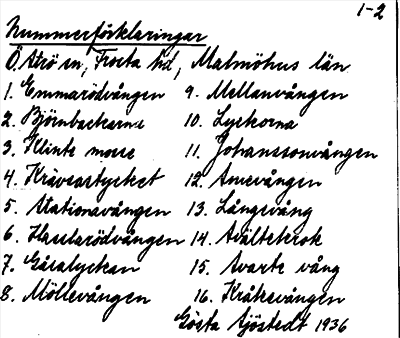 1-2
Nummerförklaringar
Ö. Strö sn, Frosta hd, Malmöhus län
1. Emmarödvången 9. Mellanvången
2. Björnbackarna 10. Lyckorna
3. Klinte mosse 11. Johanssonvången
4. Kräveastycket 12. Amevången
5. Stationsvången 13. Långevång
6. Hasslarödvången 14. Svältekrok
7. Gåsalyckan 15. Svarte vång
8. Möllevången 16. Kråkevången
Gösta Sjöstedt 1936